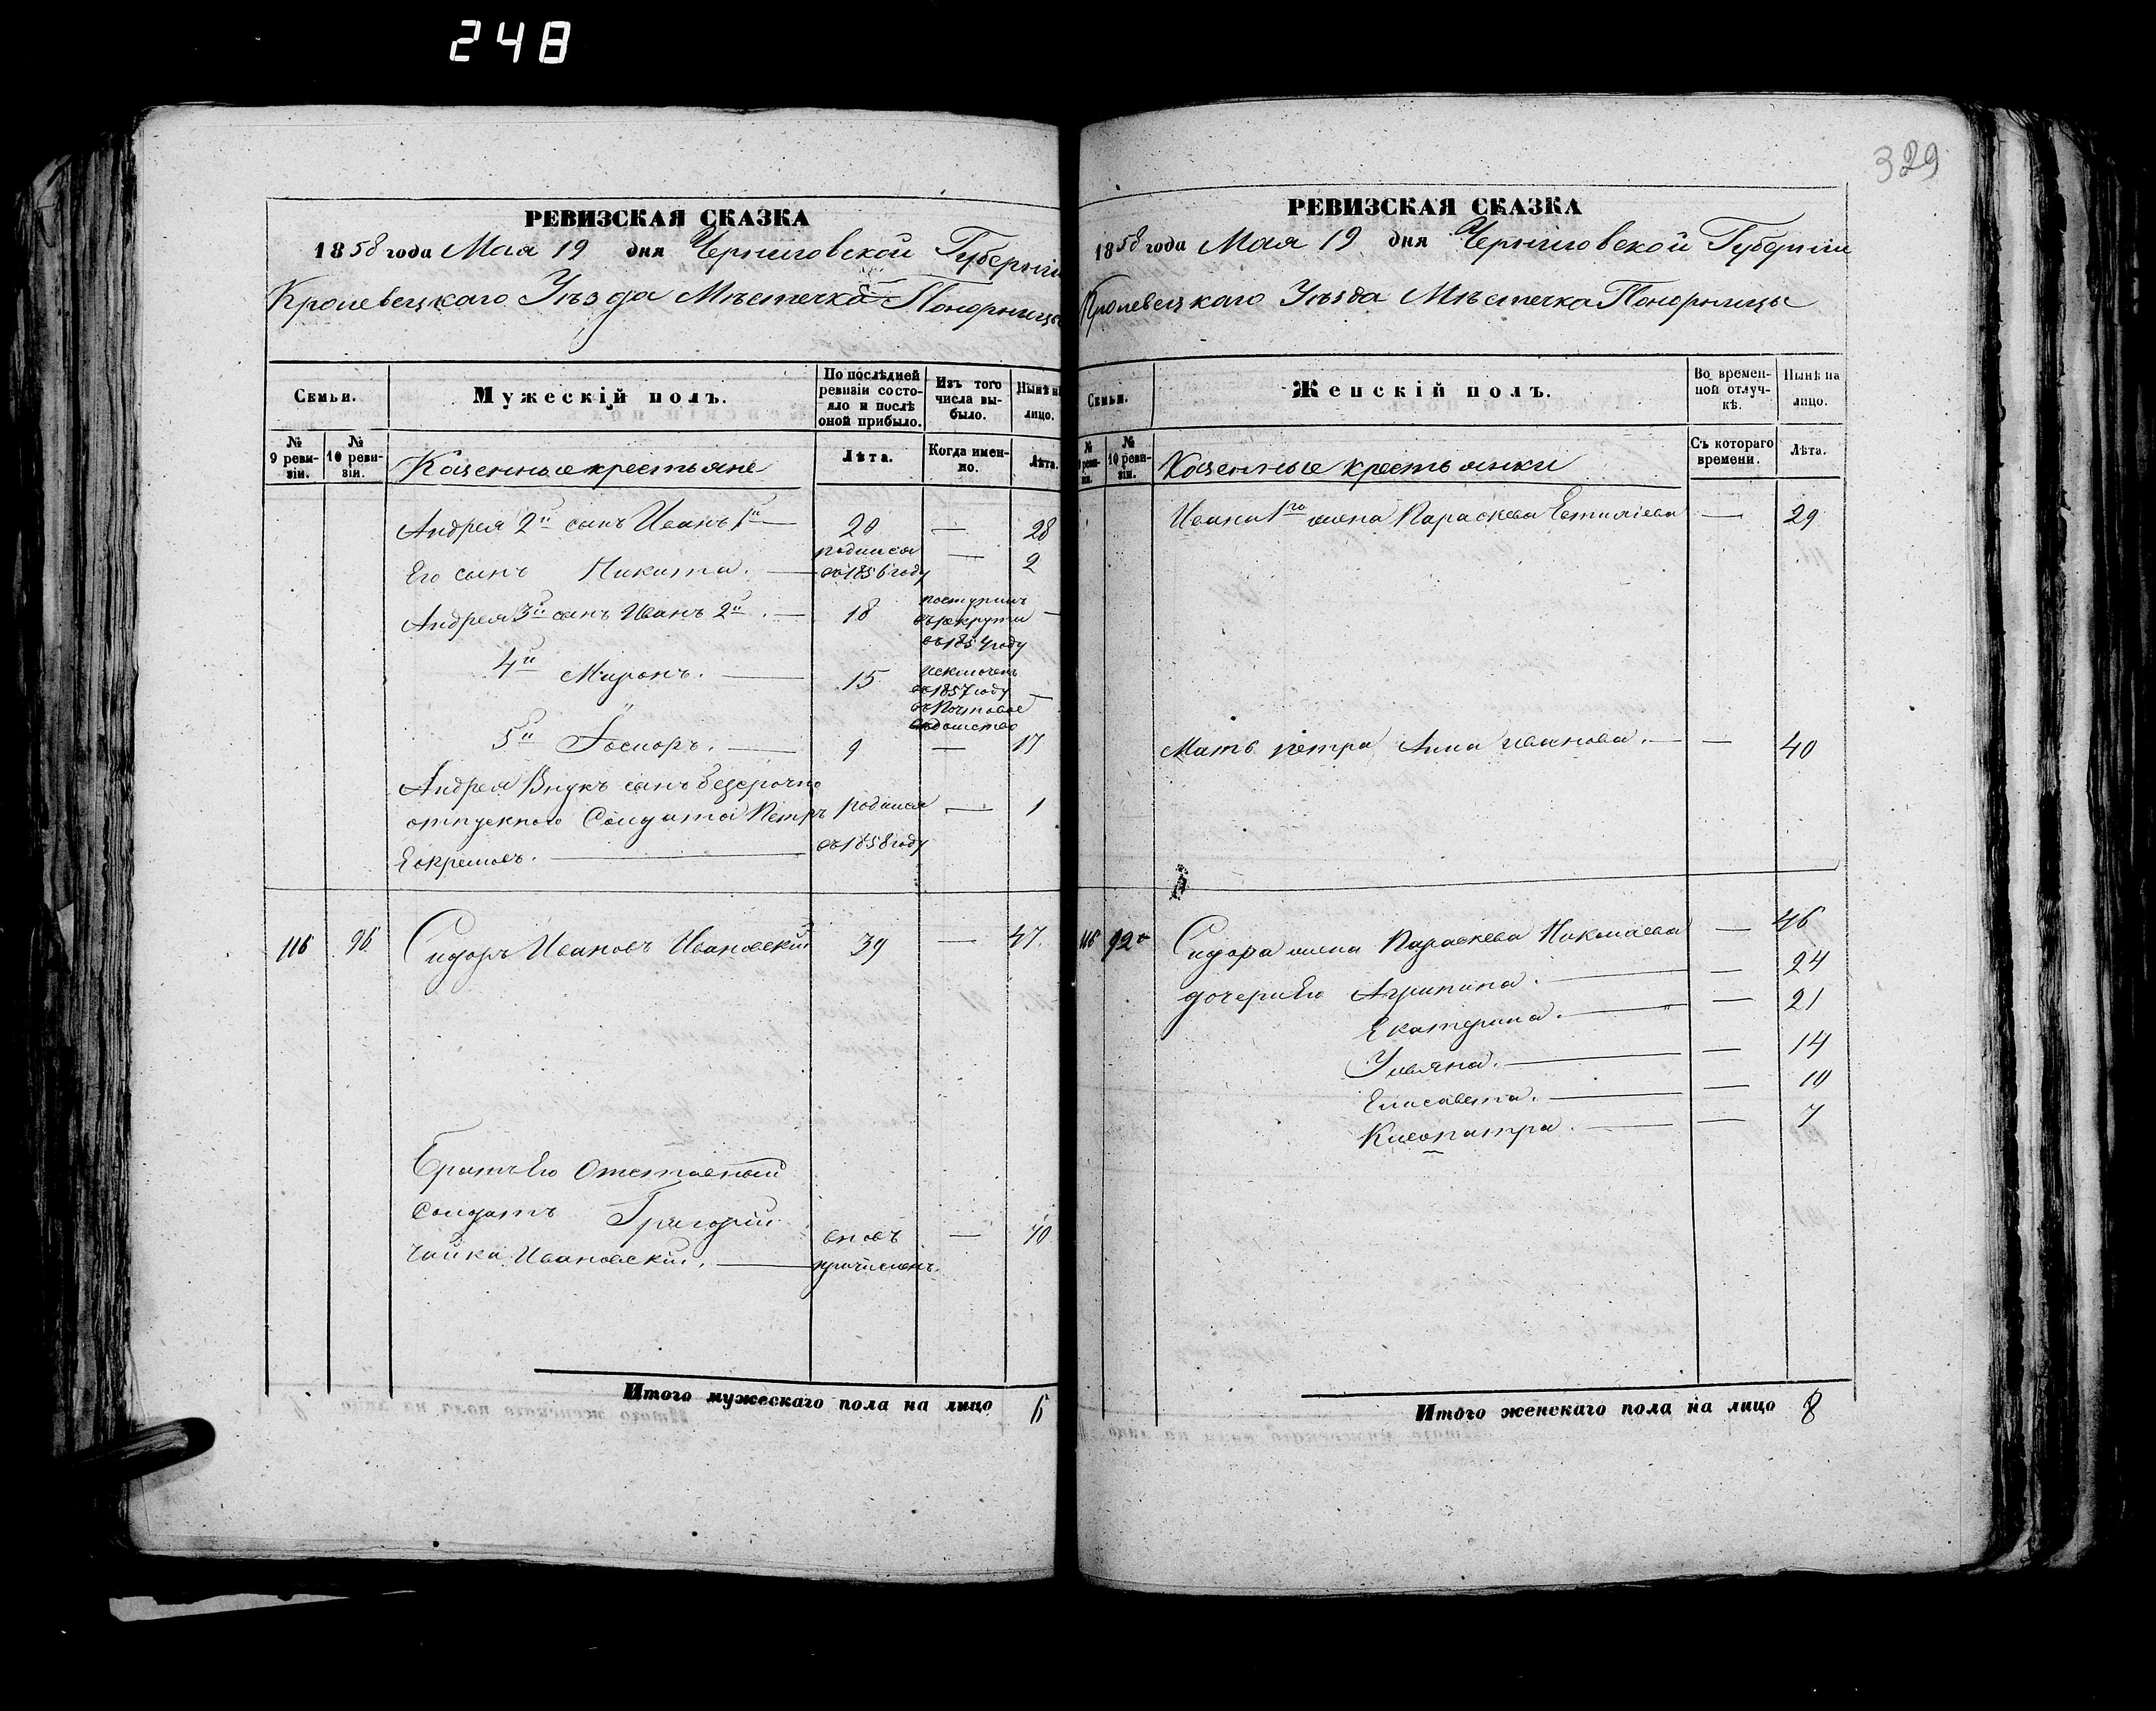 248
329
РЕВИЗСКАЯ СКАЗКА
1858 года Мая 19 дня Черниговской Губерніи
Кролевецкаго Уѣзда Мѣстечка Понорницы
Семьи.
Мужескій полъ.
По послѣдней ревизіи состояло и послѣ оной прибыло.
Изъ того числа выбыло.
Нынѣ на лицо.
№ 9 ревизіи.
№ 10 ревизіи.
Казенные крестьяне
Лѣта.
Когда именно.
Лѣта.
Андрея 2й сынъ Иванъ 1й — 20 — 28
Его сынъ Никита. — родился въ 1856 году — 2
Андрея 3й сынъ Иванъ 2й. — 18 поступилъ въ рекруты въ 1854 году —
4й Миронъ. — 15 исключенъ въ 1857 году въ Почтовое вѣдомство —
5й — 9 — 17
Андрея Внукъ сынъ безсрочно
отпускного Солдата Петръ родился — 1
въ 1858 году
116 96 Сидоръ Ивановъ Ивановскій 39 — 47.
Братъ Его Отставный
Солдатъ Григорій
Чайка Ивановскій. — вновь причисленъ. — 40
Итого мужескаго пола на лицо 6
РЕВИЗСКАЯ СКАЗКА
1858 года Мая 19 дня Черниговской Губерніи
Кролевецкаго Уѣзда Мѣстечка Понорницы
Семьи.
Женскій полъ.
Во временной отлучкѣ.
Нынѣ на лицо.
№ 9 ревизіи.
№ 10 ревизіи.
Казенные крестьянки
Съ котораго времени.
Лѣта.
Ивана 1го жена Параскева — 29
Мать Петра Анна Иванова. — — 40
116 92 Сидора жена Параскева Николаева — 46
дочери Его Агрипина. — — 24
Екатерина. — — 21
Ульяна. — — 14
Елисавета. — — 10
Клеопатра. — — 7
Итого женскаго пола на лицо 8